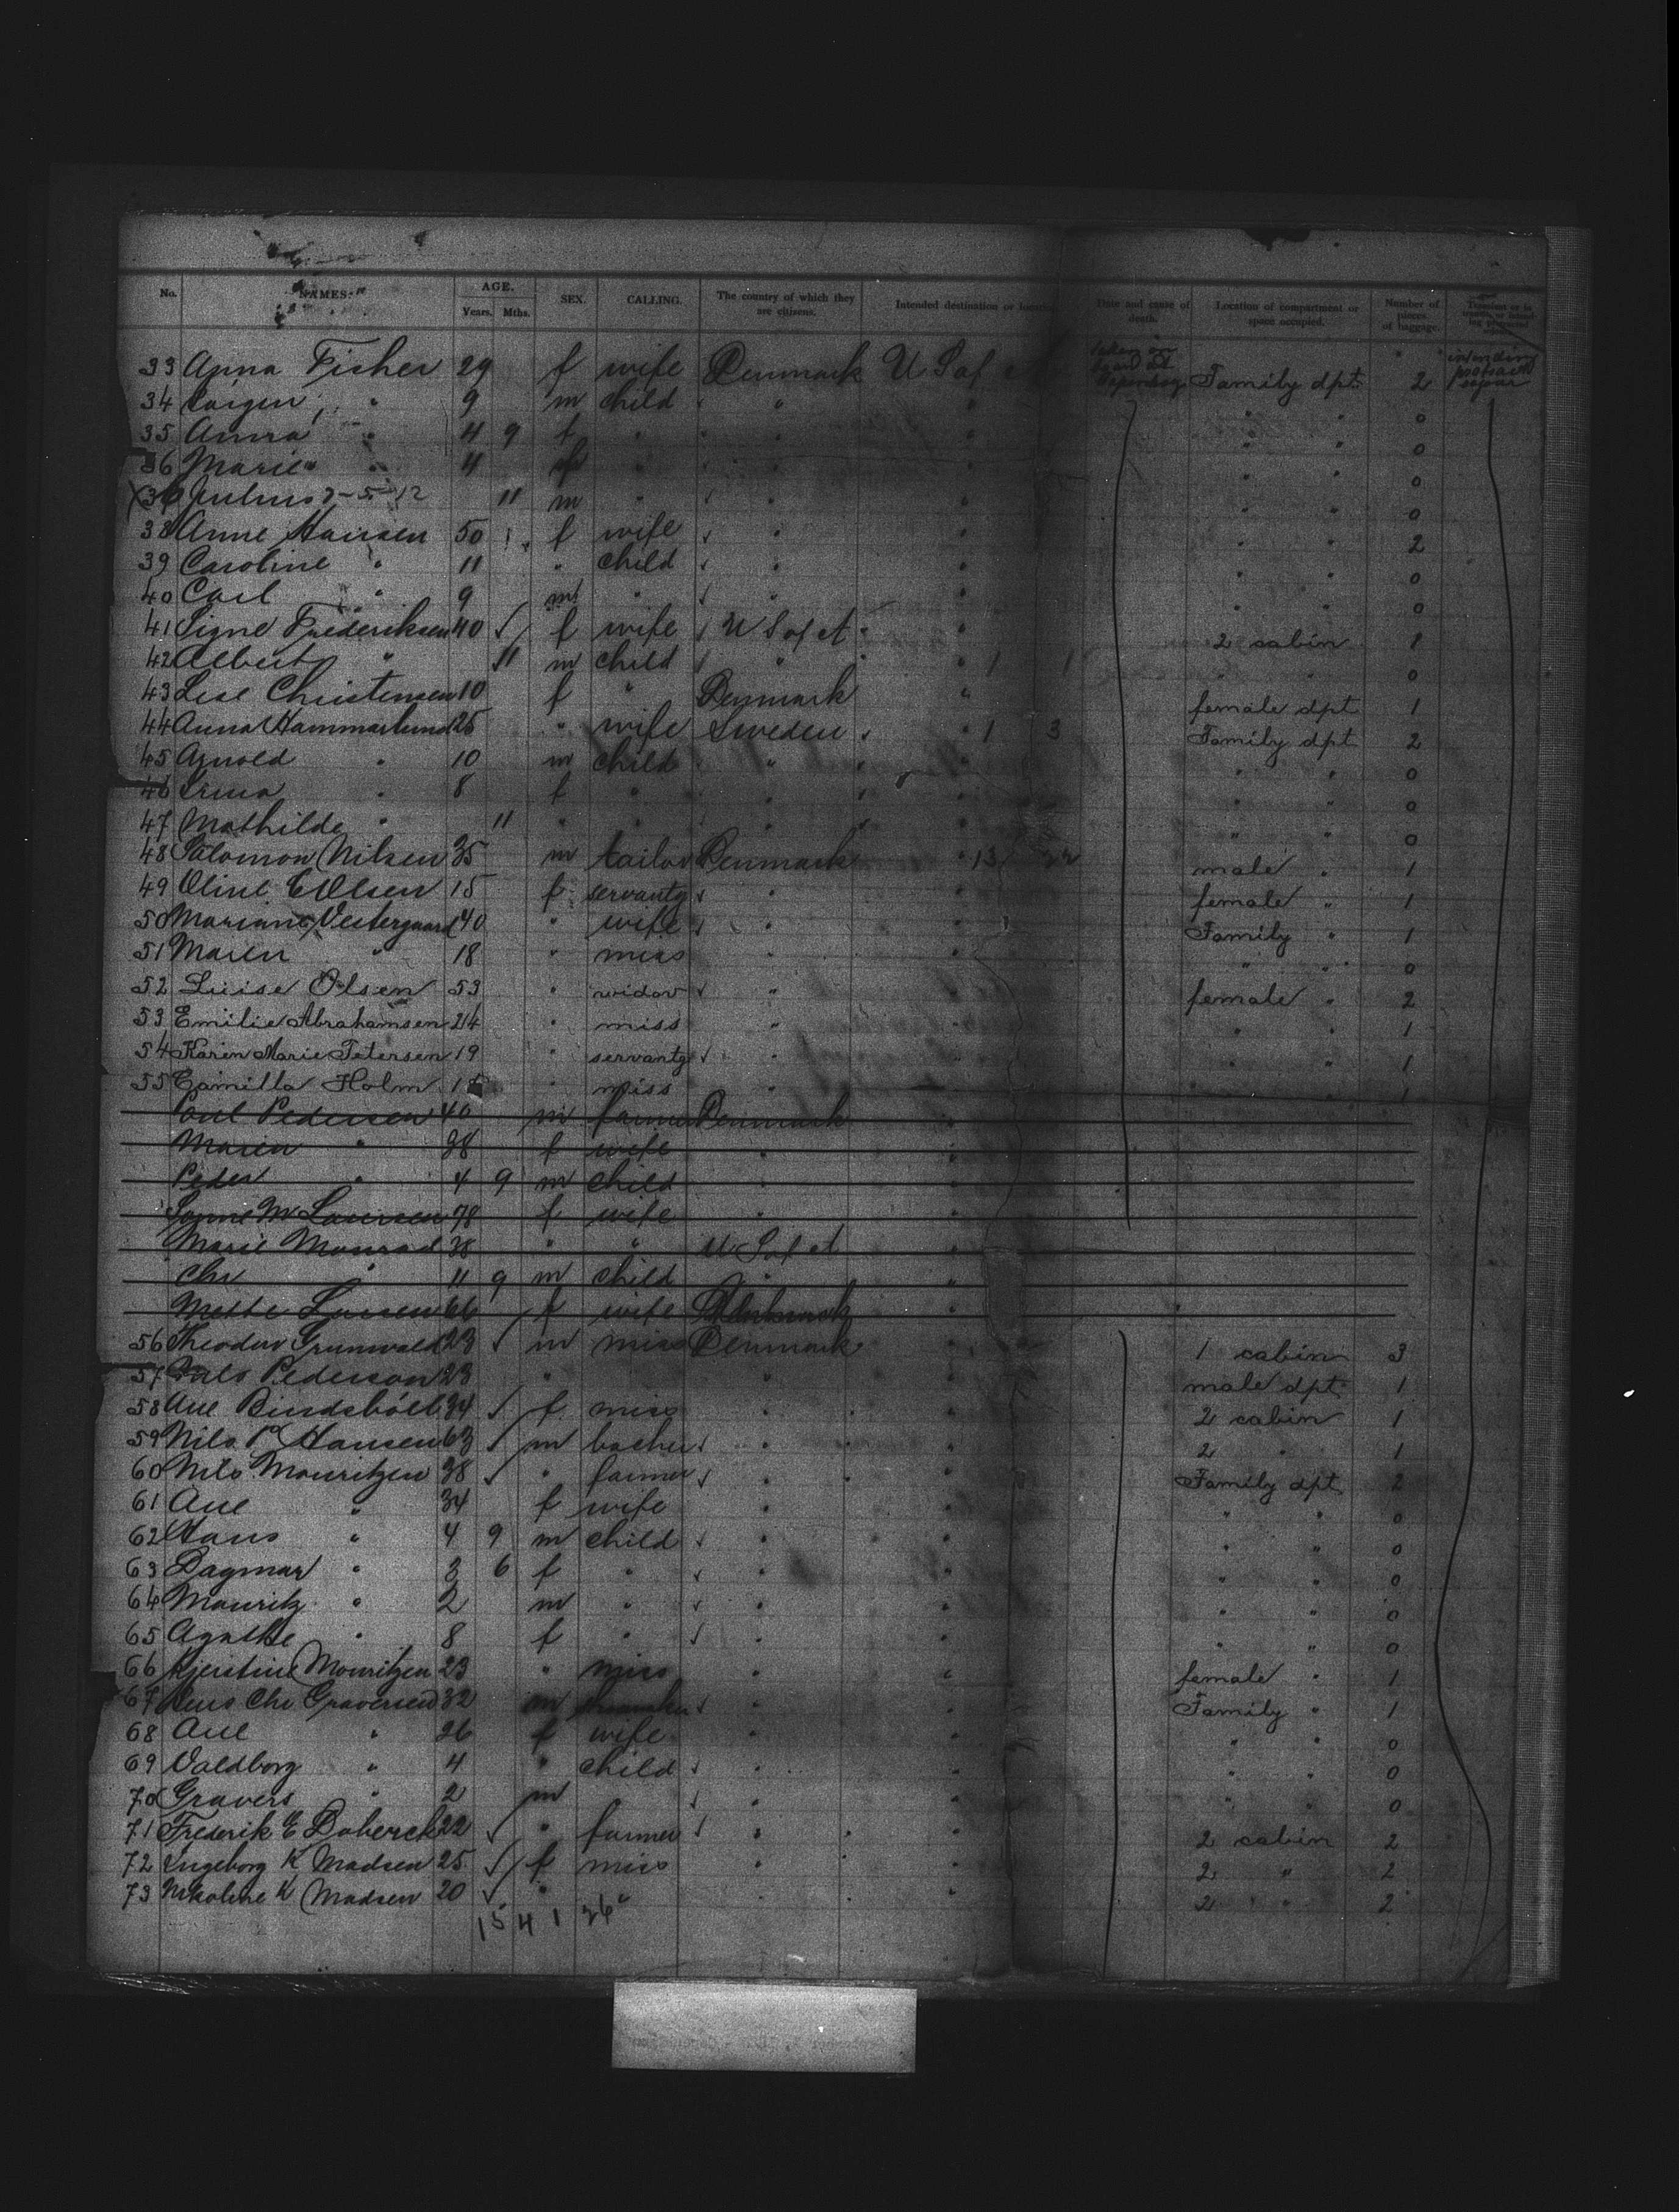 No. NAMES. AGE. Years. Mths. SEX. CALLING. The country of which they are citizens. Intended destination or location Date and cause of death. Location of compartment or space occupied. Number of pieces of baggage.
33 Anna Fisher 29 f wife Denmark U S of Family dpt 2
34 " 9 m child " " " " " 0
35 Anna " 4 9 f " " " " " 0
36 Marie " 4 f " " " " " 0
Julius 2-5-12 11 m " " " " " 0
38 Anne Hansen 50 f wife " " " " 2
39 Caroline " 11 " child " " " " 0
40 Carl " 9 m " " " " " 0
41 Signe Frederiksen 40 f wife U S of A " 2 cabin 1
42 Albert " 11 m child " " " " 0
43 Lise Christensen 10 f " Denmark " female dpt 1
44 Anna Hammarlund 25 " wife Sweden " 1 3 Family dpt 2
45 Arnold " 10 m child " " " " 0
46 " 8 f " " " " " 0
47 Mathilde " 11 " " " " " " 0
48 Salomon Nilsen 35 m tailor Denmark " 13 male " 1
49 Oline E Olsen 15 f servantg " " female " 1
50 Mariane Vestergaard 40 " wife " " Family " 1
51 Maren " 18 " miss " " " " 0
52 Luise Olsen 53 " widov " " female " 2
53 Emilie Abrahamsen 24 " miss " " " " 1
54 Karen Marie Petersen 19 " servantg " " " " 1
55 Camilla Holm " miss " " 1
Poul Pedersen 40 m farmer Denmark "
Maren " 38 f wife " "
Peder " 4 9 m child " "
M Laursen 78 f wife " "
Marie Monrad 38 " " U S of A "
Chr " 11 9 m child " "
Mette 66 f wife "
56 Theodor Grunwald 23 m miss Denmark " 1 cabin 3
57 Nils Pederson 23 " " " male dpt 1
58 Ane Bindsböll 34 f miss " " 2 cabin 1
59 Nils P Hansen 63 m " " 2 " 1
60 Nils Mouritzen 38 " farmer " " Family dpt 2
61 Ane " 34 f wife " " " " 0
62 Hans " 4 9 m child " " " " 0
63 Dagmar " 3 6 f " " " " " 0
64 Mouritz " 2 m " " " " " 0
65 Agathe " 8 f " " " " " 0
66 Kjerstine Mouritzen 23 " miss " " female " 1
67 Jens Chr Graversen 32 m " " Family " 1
68 Ane " 26 f wife " " " " 0
69 Valdborg " 4 " child " " " " 0
70 Gravers " 2 m " " " " 0
71 Frederik E Doberck 22 " farmer " " 2 cabin 2
72 Ingeborg K Madsen 25 f miss " " 2 " 2
73 Nikoline K Madsen 20 " " " " 2 " 2
15 4 1 26